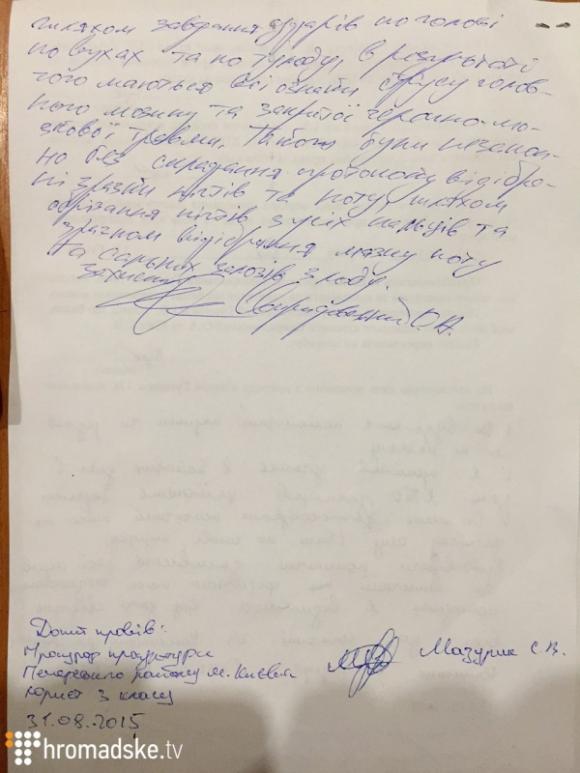 шляхом завдання ударів по голові
по вухах та по тулубу, в результаті
чого маються всі ознаки струсу голов-
ного мозку та закритої черепно-мо-
зкової травми. Також були незакон-
но без складання протоколу відібра-
ні зразки нігтів та поту, шляхом
обрізання нігтів з усіх пальців та
зразком відібрання мазку поту
та сальних залозів з лоду.
Захисник
О.В.
Допит провів:
Прокурор прокуратури
Печерського району м. Києва
юрист 3 класу
31.08.2015
Мазурик С.В.
hromadske.tv